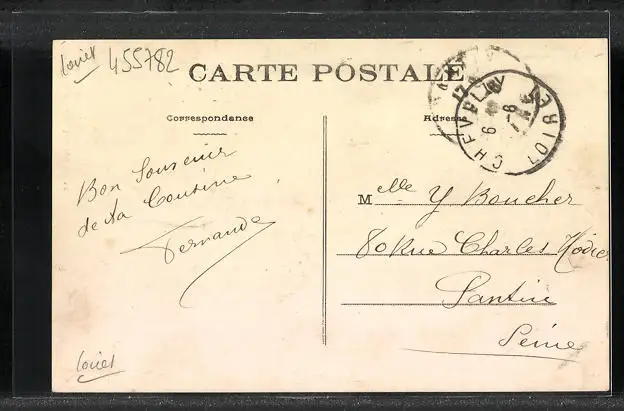 Loiret 455782
CARTE POSTALE
Correspondance
Adresse
CHEVILLY
6 - 6
LOIRET
Bon Souvenir
de ta Cousine
Fernande
Melle Y Boucher
80 Rue Charles Nodier
Pantin
Seine
Loiret